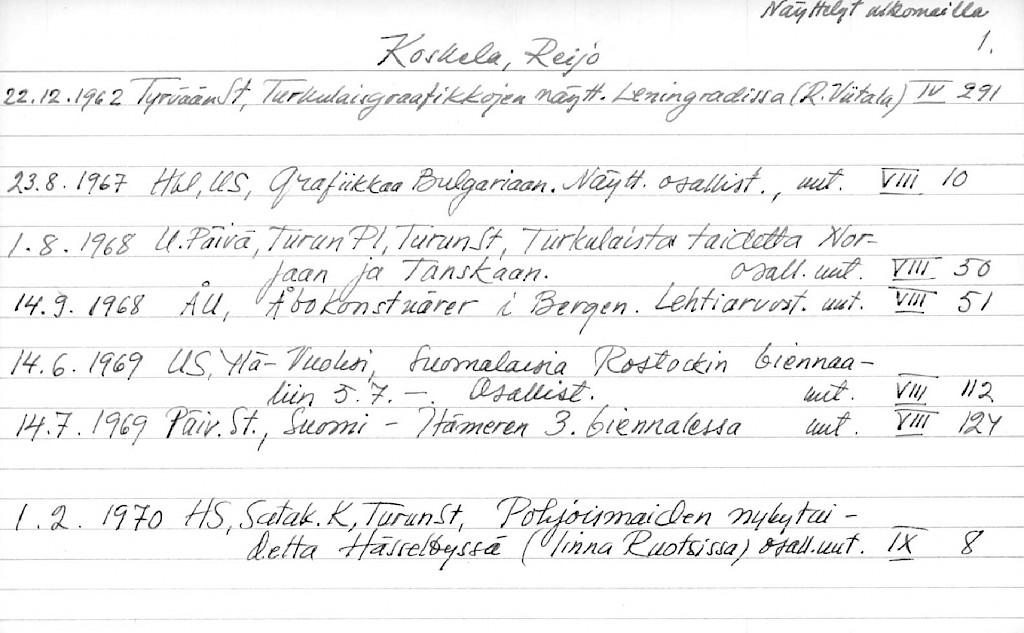 Näyttelyt ulkomailla
1.
Koskela, Reijo
22.12.1962 TyrväänSt, Turkulaisgraafikkojen näytt. Leningradissa (R. Viitala) IV 291
23.8. 1967 Hbl, US, Grafiikkaa Bulgariaan. Näytt. osallist., uut. VIII 10
1.8. 1968 U. Päivä, Turun Pl, TurunSt, Turkulaista taidetta Nor-
jaan ja Tanskaan. osall. uut. VIII 50
14.9. 1968 ÅU, Åbokonstnärer i Bergen. Lehtiarvost. uut. VIII 51
14.6. 1969 US, Ylä-Vuoksi, Suomalaisia Rostockin biennaa-
liin 5.7.-. Osallist. uut. VIII 112
14.7. 1969 Päiv. St., Suomi - Itämeren 3. biennalessa uut. VIII 124
1.2. 1970 HS, Satak. K, TurunSt, Pohjoismaiden nykytai-
detta Hässelbyssä (linna Ruotsissa) osall. uut. IX 8